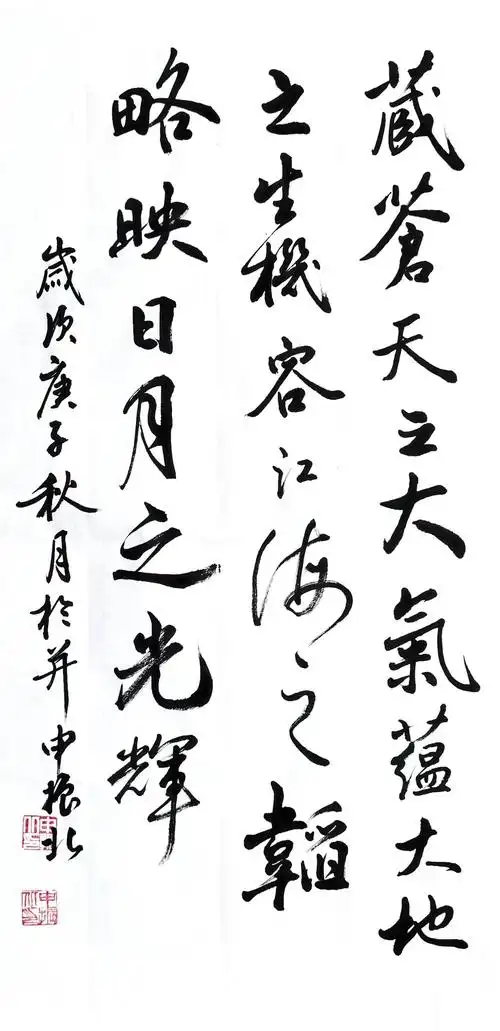 藏蒼天之大氣蘊大地
之生機容江海之韜
略映日月之光輝
歲次庚子秋月於并申振北